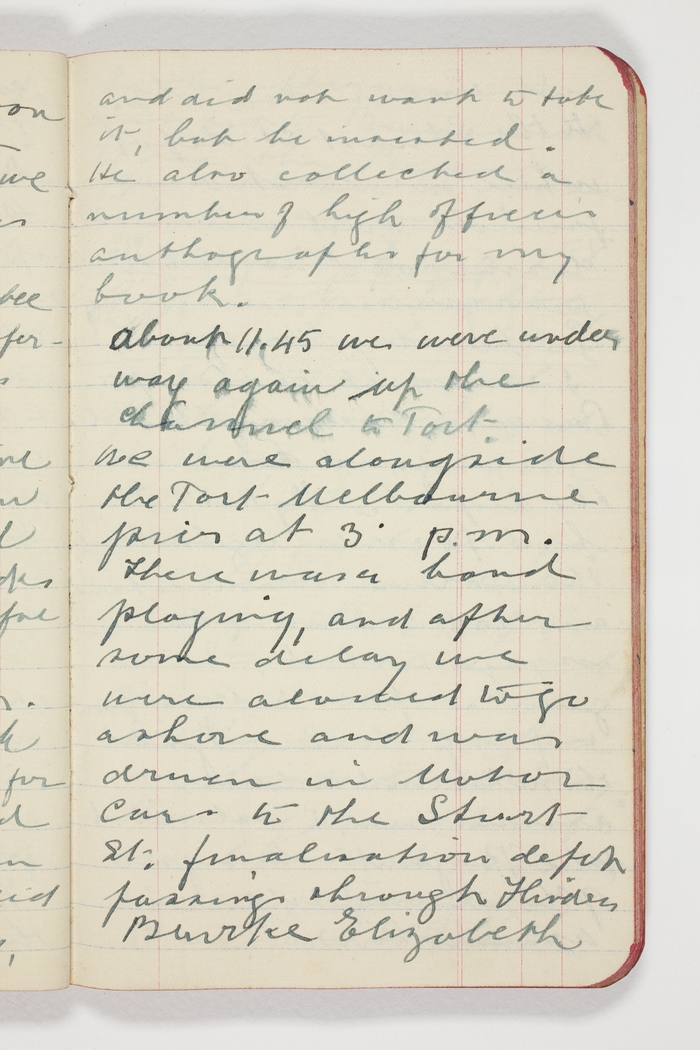 and did not want to take
it, but he insisted.
He also collected a
number of high officers
authographs for my
book.
about 11.45 we were under
way again up the
channel to Port.
We were alongside
the Port Melbourne
pier at 3. p.m.
There was a band
playing, and after
some delay we
were alowed to go
ashore and was
driven in Motor
Cars to the Sturt
St. finalisation depot
passing through Flinders
Burke Elizabeth